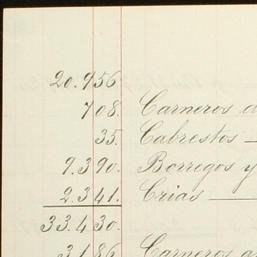 20.956.
708. Carneros a
35. Cabrestos —
9.390. Borregos y
2.341. Crias —
33.430.
3.186 Carneros a